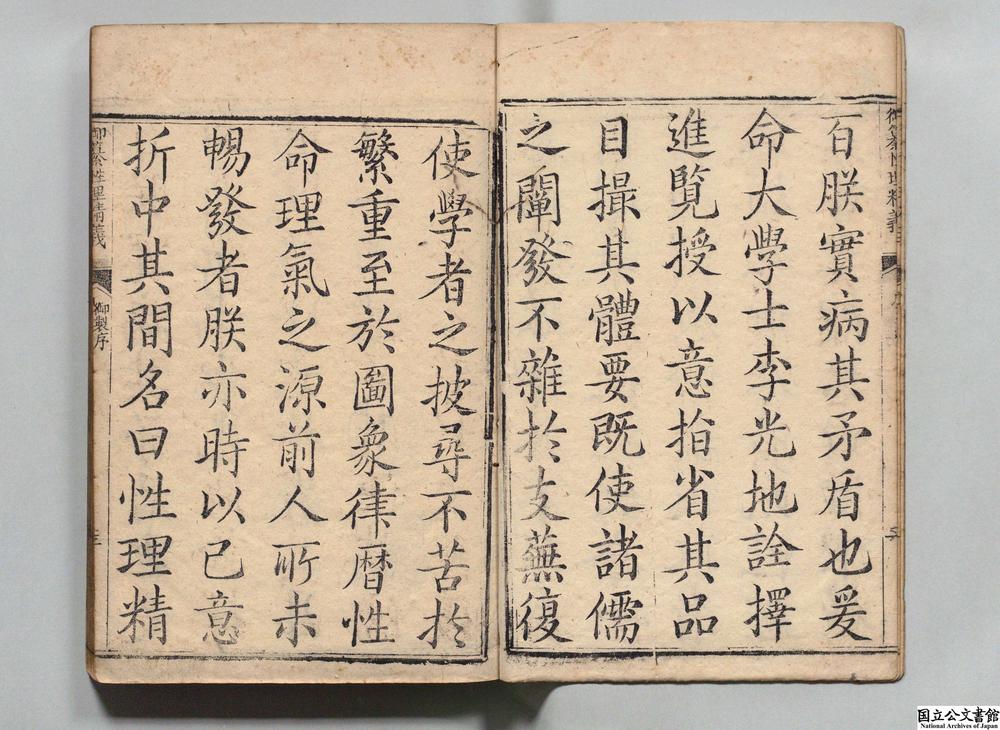 百朕實病其矛盾也爰
命大學士李光地詮擇
進覽授以意指省其品
目撮其體要既使諸儒
之闡發不雜於支蕪復
使學者之披尋不苦於
繁重至於圖象律曆性
命理氣之源前人所未
暢發者朕亦時以己意
折中其間名曰性理精
御纂性理精義
御製序
三
国立公文書館
National Archives of Japan